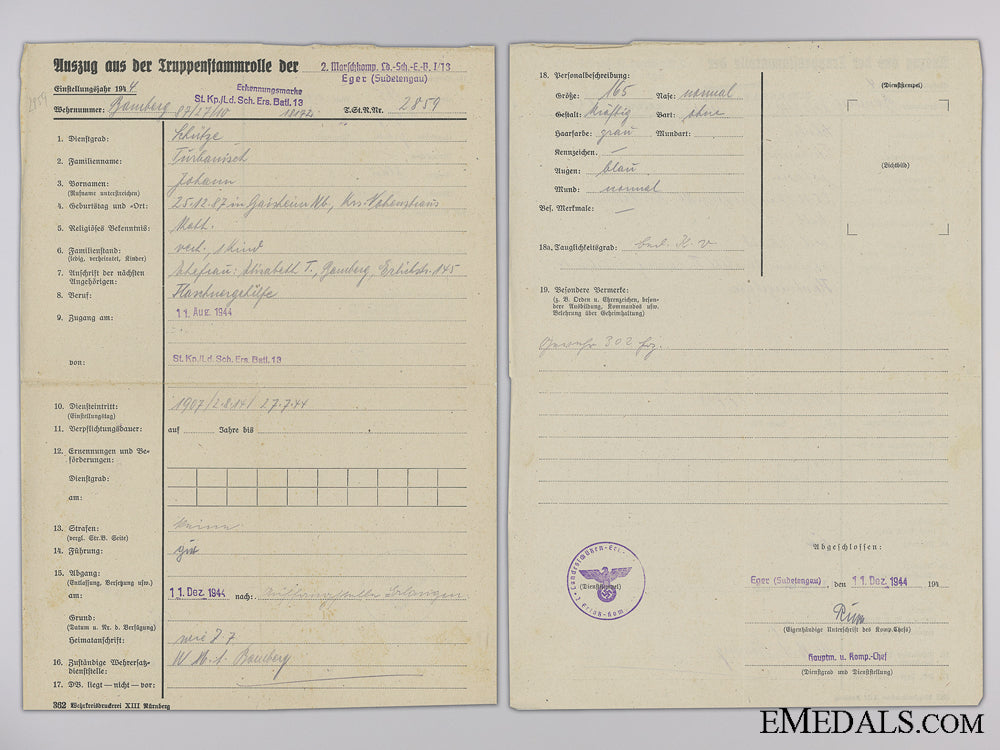 Auszug aus der Truppenstammrolle der 2. Marschkomp. Ld.-Sch.-E.-B. I/13
Eger (Sudetengau)
Einstellungsjahr 1944
Erkennungsmarke
St. Kp./Ld. Sch. Ers. Batl. 13
Wehrnummer: Bamberg 87/27/10
T.St.R.Nr. 2859
1. Dienstgrad: Schütze
2. Familienname:
3. Vornamen: Johann
(Rufname unterstreichen)
4. Geburtstag und -Ort: 25.12.87 in
5. Religiöses Bekenntnis: Kath.
6. Familienstand: verh., 1 Kind
(ledig, verheiratet, Kinder)
7. Anschrift der nächsten Angehörigen: Ehefrau: Elisabeth T., Bamberg, 145
8. Beruf:
9. Zugang am: 11. Aug. 1944
von: St. Kp./Ld. Sch. Ers. Batl. 13
10. Diensteintritt: 1907/2.8.14/ 27.7.44
(Einstellungstag)
11. Verpflichtungsdauer: auf Jahre bis
12. Ernennungen und Be-
förderungen:
Dienstgrad:
am:
13. Strafen: keine
(vergl. Str.B. Seite)
14. Führung: gut
15. Abgang:
(Entlassung, Versetzung usw.)
am: 11. Dez. 1944 nach: Erlangen
Grund:
(Datum u. Nr. d. Verfügung)
Heimatanschrift: wie Z. 7
16. Zuständige Wehrersatz-
dienststelle: W. M. A. Bamberg
17. DB. liegt — nicht — vor:
362 Wehrkreisdruckerei XIII Nürnberg
18. Personalbeschreibung:
Größe: 165 Nase: normal
Gestalt: kräftig Bart: ohne
Haarfarbe: grau Mundart:
Kennzeichen: —
Augen: blau
Mund: normal
Bes. Merkmale: —
18a. Tauglichkeitsgrad: bed. K. v
(Dienststempel)
(Lichtbild)
19. Besondere Vermerke:
(z. B. Orden u. Ehrenzeichen, beson-
dere Ausbildung, Kommandos usw.
Belehrung über Geheimhaltung)
Gewehr 302
Abgeschlossen:
(Dienststempel)
Eger (Sudetengau), den 11. Dez. 1944 194
(Eigenhändige Unterschrift des Komp.Chefs)
Hauptm. u. Komp.-Chef
(Dienstgrad und Dienststellung)
EMEDALS.COM